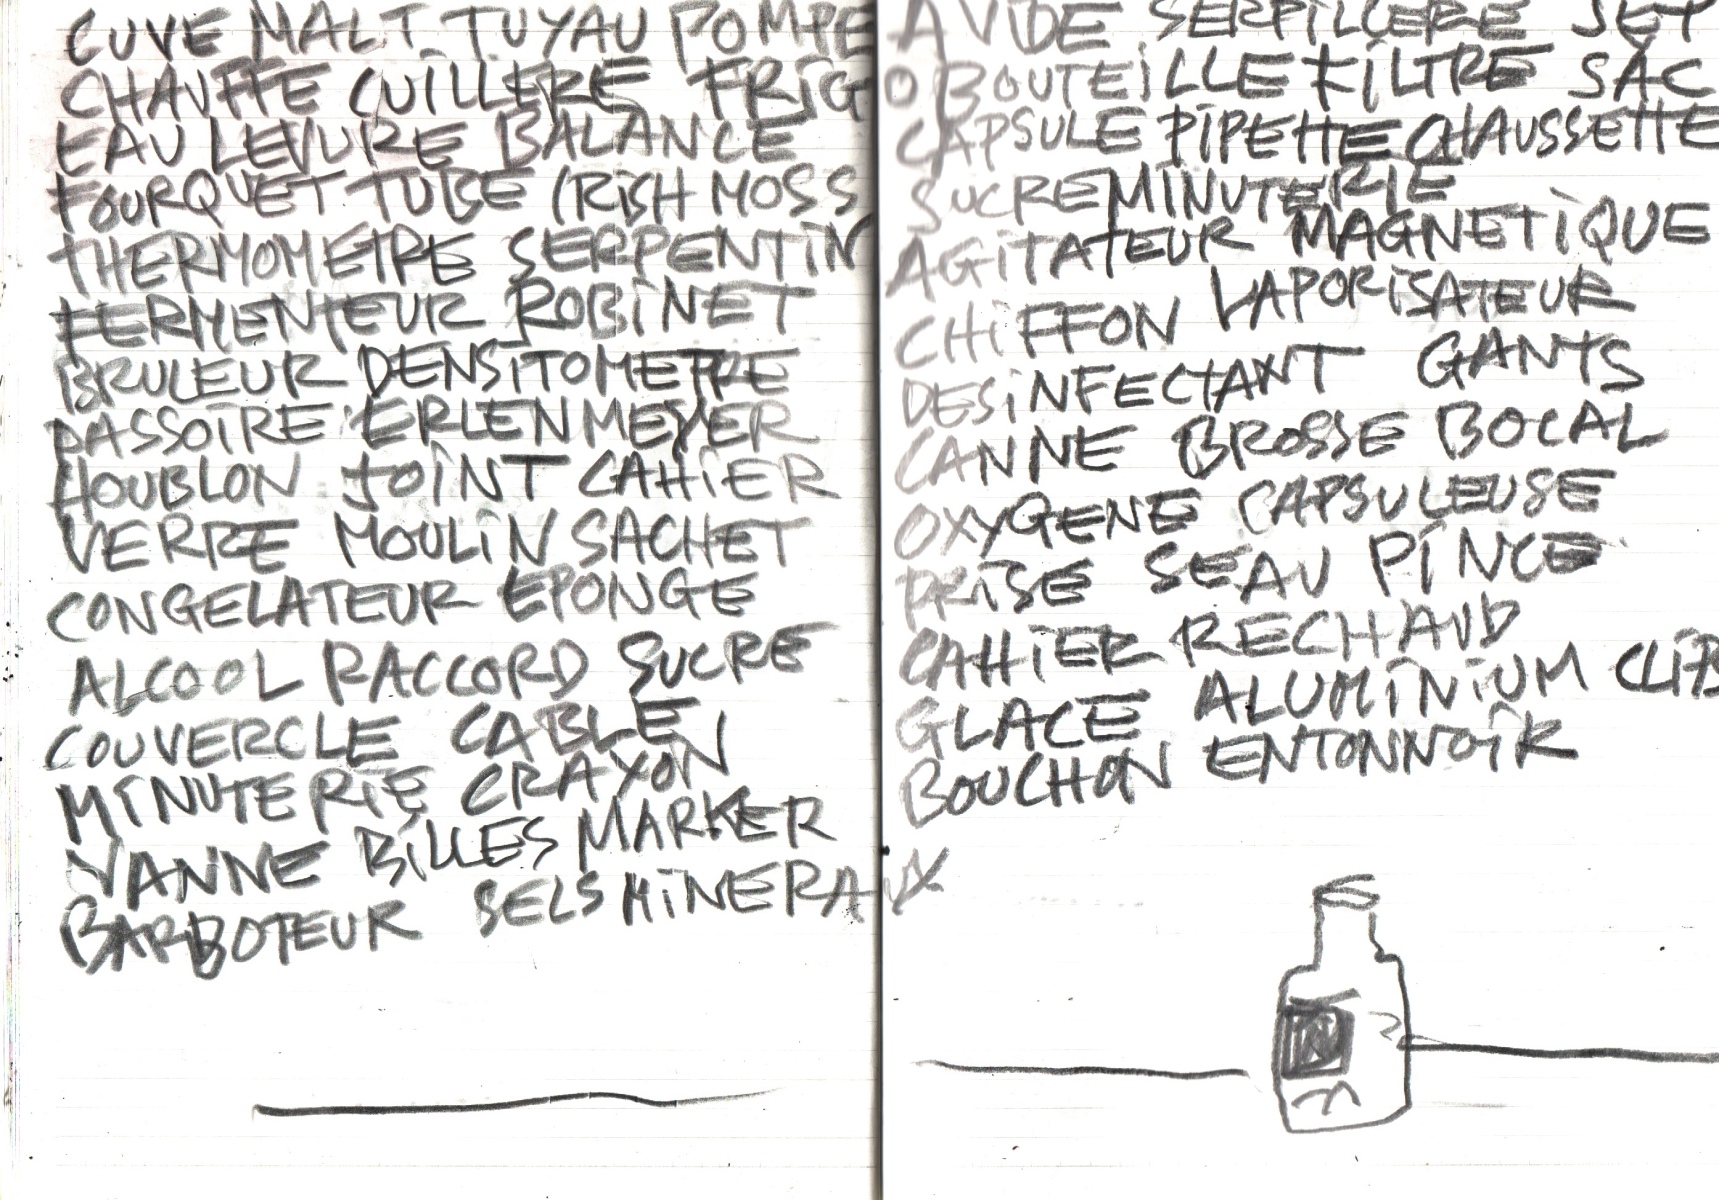 CUVE MALT TUYAU POMPE A VIDE SERPILLERE
CHAUFFE CUILLERE FRIGO BOUTEILLE FILTRE SAC
EAU LEVURE BALANCE CAPSULE PIPETTE CHAUSSETTE
FOURQUET TUBE IRISH MOSS SUCRE MINUTERIE
THERMOMETRE SERPENTIN AGITATEUR MAGNETIQUE
FERMENTEUR ROBINET CHIFFON VAPORISATEUR
BRULEUR DENSITOMETRE DESINFECTANT GANTS
PASSOIRE ERLENMEYER CANNE BROSSE BOCAL
HOUBLON JOINT CAHIER OXYGENE CAPSULEUSE
VERRE MOULIN SACHET PRISE SEAU PINCE
CONGELATEUR EPONGE CAHIER RECHAUD
ALCOOL RACCORD SUCRE GLACE ALUMINIUM CLIPS
COUVERCLE CABLE BOUCHON ENTONNOIR
MINUTERIE CRAYON
VANNE BILLES MARKER
BARBOTEUR SELS MINERAUX